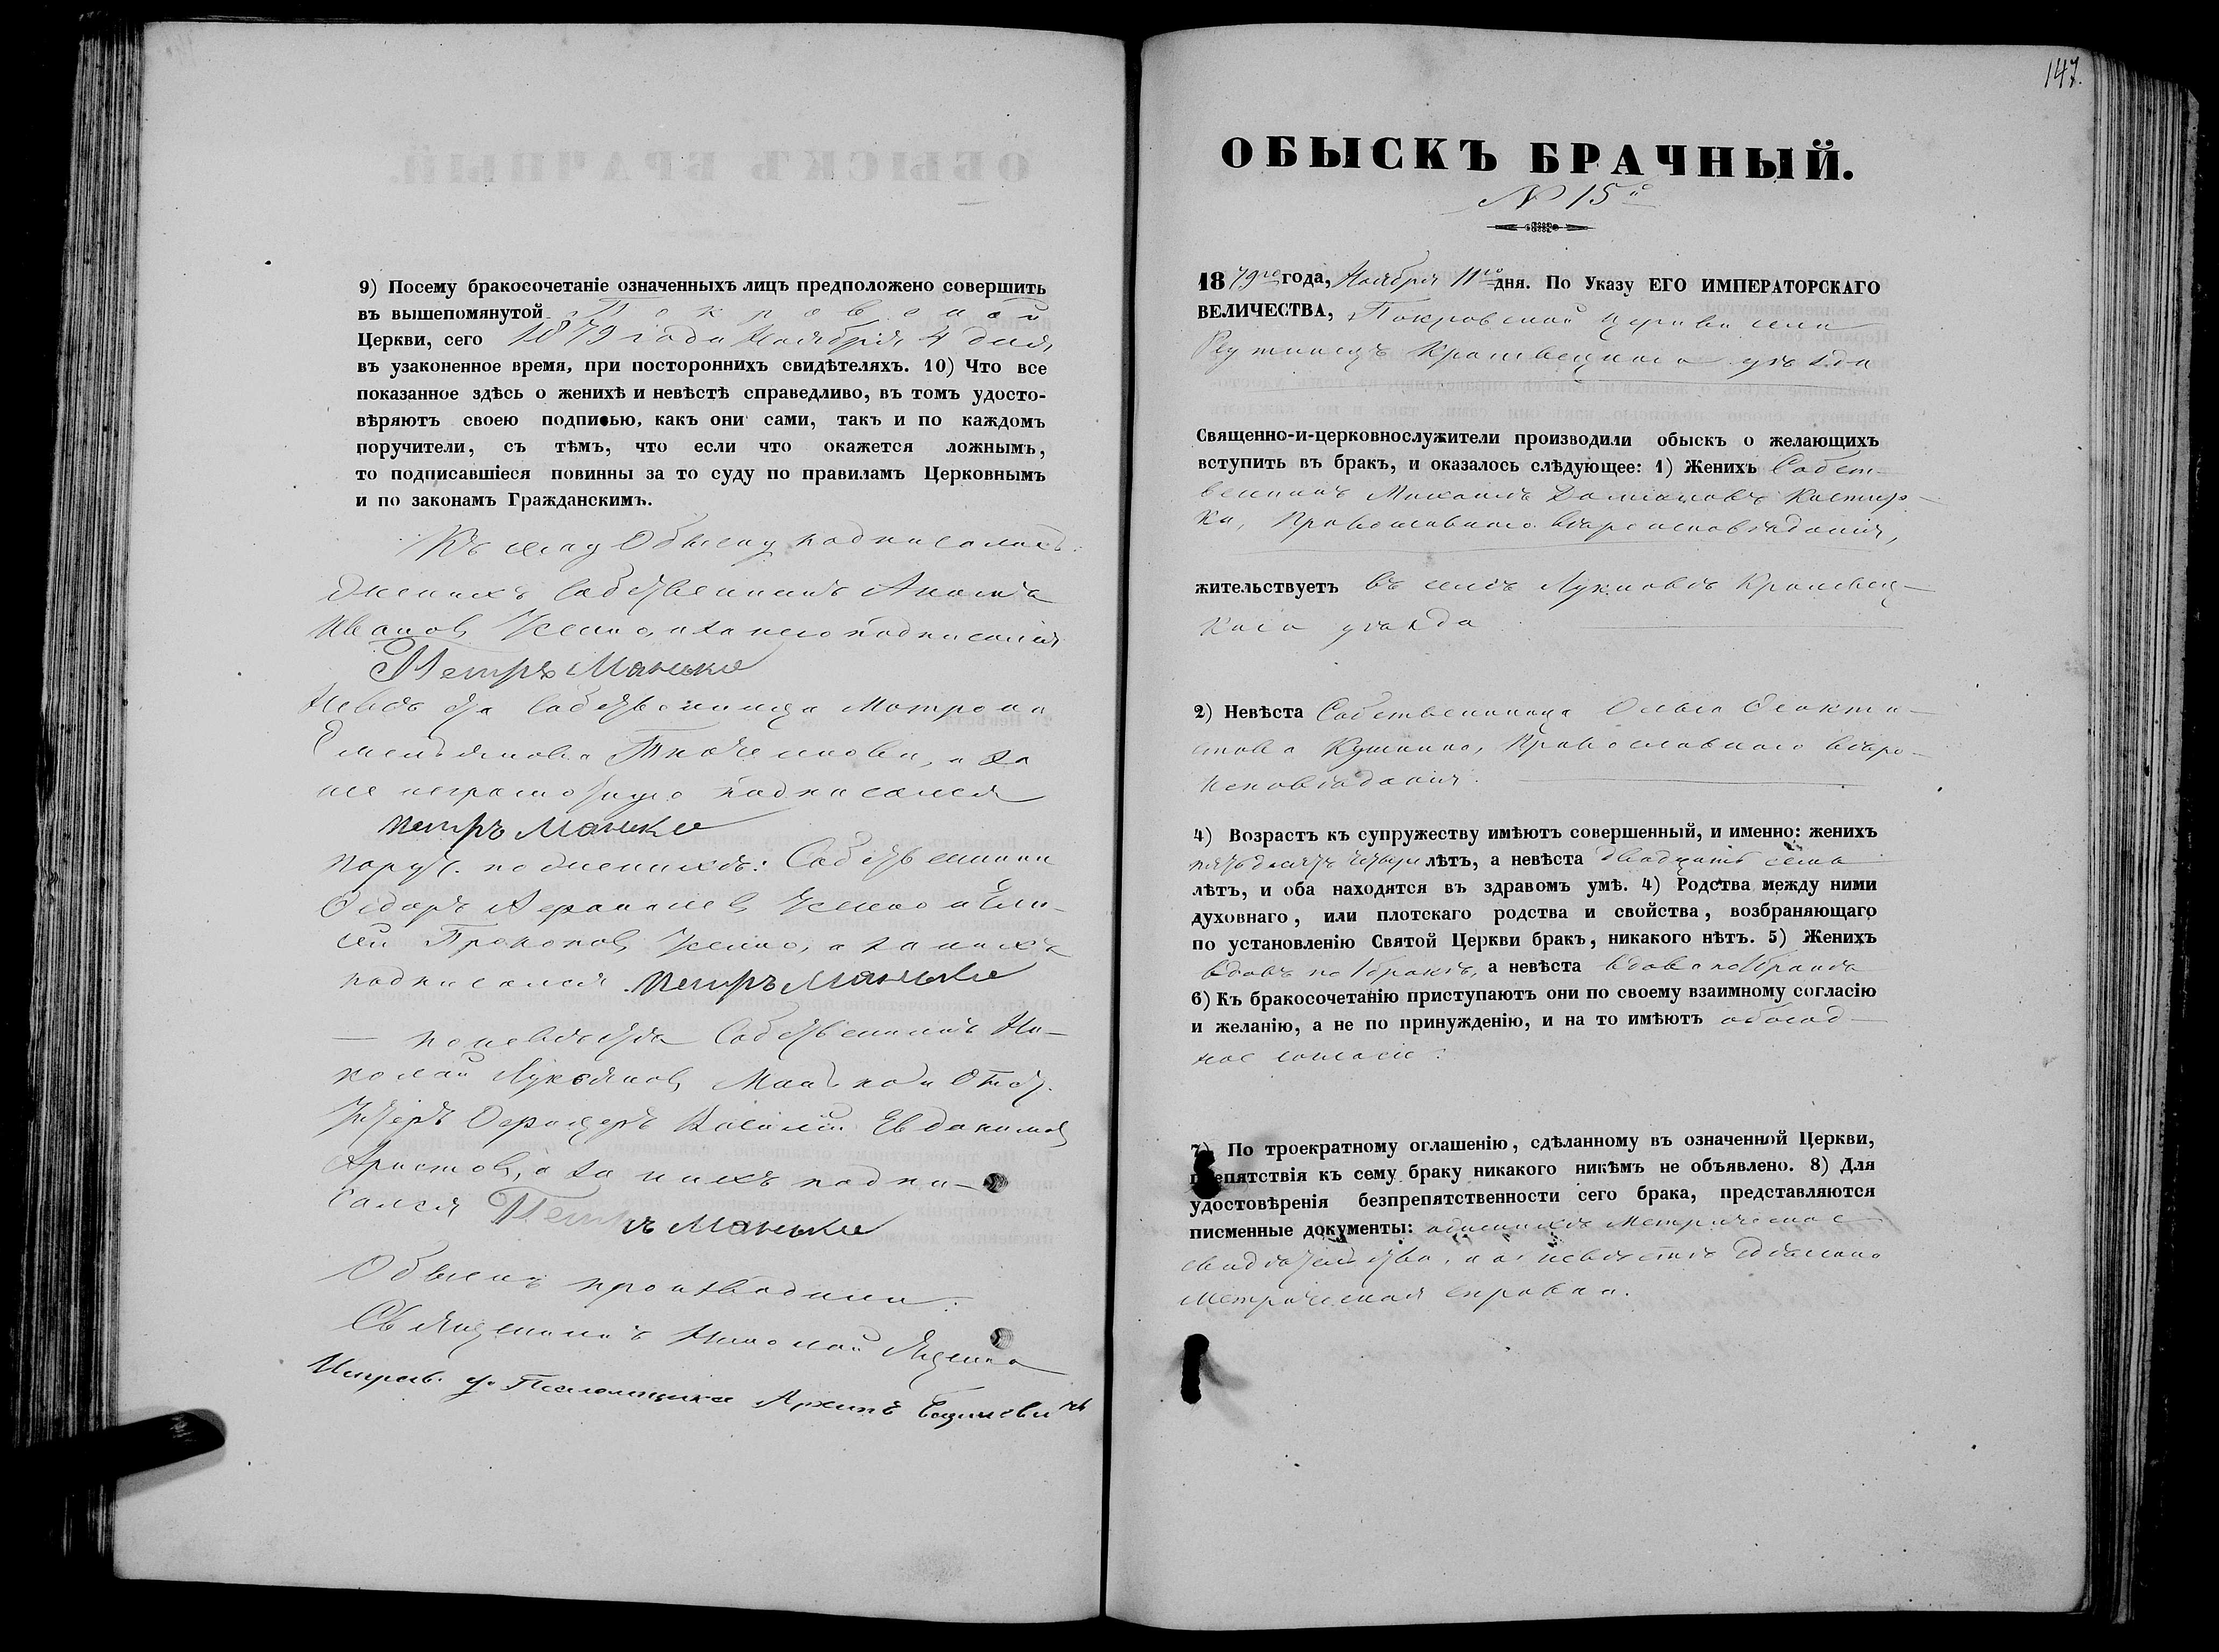 9) Посему бракосочетаніе означенныхъ лицъ предположено совершить
въ вышепомянутой Покровской
Церкви, сего 1879 года Ноября 4 дня,
въ узаконенное время, при постороннихъ свидѣтеляхъ. 10) Что все
показанное здѣсь о женихѣ и невѣстѣ справедливо, въ томъ удосто-
вѣряютъ своею подписью, какъ они сами, такъ и по каждомъ
поручители, съ тѣмъ, что если что окажется ложнымъ,
то подписавшіеся повинны за то суду по правиламъ Церковнымъ
и по законамъ Гражданскимъ.
Къ сему Обыску подписались:
Женихъ Собственникъ
Ивановъ Усенко, а за него подписался
Петръ Манько
Невѣста Собственница Матрона
Емельянова Ткаченкова, а за
нее неграмотную подписался
Петръ Манько
Поруч. по женихѣ: Собственники
Ѳедоръ Усенко и Ели-
сей Прокоповъ Усенко, а за нихъ
подписался Петръ Манько
— по невѣстѣ Собственникъ Ни-
колай Лукьяновъ Манько и Отст.
Унтеръ Офицеръ Василій Евдокимовъ
Аристовъ, а за нихъ подпи-
сался Петръ Манько
Обыскъ производили:
Священникъ Николай Яценко
Исправ. д. Псаломщика Архипъ
147.
ОБЫСКЪ БРАЧНЫЙ.
№ 15й
1879го года, Ноября 11го дня. По Указу ЕГО ИМПЕРАТОРСКАГО
ВЕЛИЧЕСТВА, Покровской церкви села
Реутинецъ Кролевецкаго уѣзда
Священно-и-церковнослужители производили обыскъ о желающихъ
вступить въ бракъ, и оказалось слѣдующее: 1) Женихъ Собст-
венникъ Михаилъ Даміановъ Костюр-
ка, Православнаго вѣроисповѣданія,
жительствуетъ въ селѣ Лукновѣ Кролевец-
каго уѣзда
2) Невѣста Собственница Ольга Ѳеокти-
стова Кушнно, Православнаго вѣро-
исповѣданія.
4) Возрастъ къ супружеству имѣютъ совершенный, и именно: женихъ
пятьдесятъ четыре лѣтъ, а невѣста двадцать семь
лѣтъ, и оба находятся въ здравомъ умѣ. 4) Родства между ними
духовнаго, или плотскаго родства и свойства, возбраняющаго
по установленію Святой Церкви бракъ, никакого нѣтъ. 5) Женихъ
вдовъ по I бракѣ, а невѣста вдова по I бракѣ
6) Къ бракосочетанію приступаютъ они по своему взаимному согласію
и желанію, а не по принужденію, и на то имѣютъ обоюд-
ное согласіе.
7) По троекратному оглашенію, сдѣланному въ означенной Церкви,
препятствія къ сему браку никакого никѣмъ не объявлено. 8) Для
удостовѣренія безпрепятственности сего брака, представляются
писменные документы: о женихѣ Метрическое
свидѣтельство, а о невѣстѣ сдѣлана
метрическая справка.